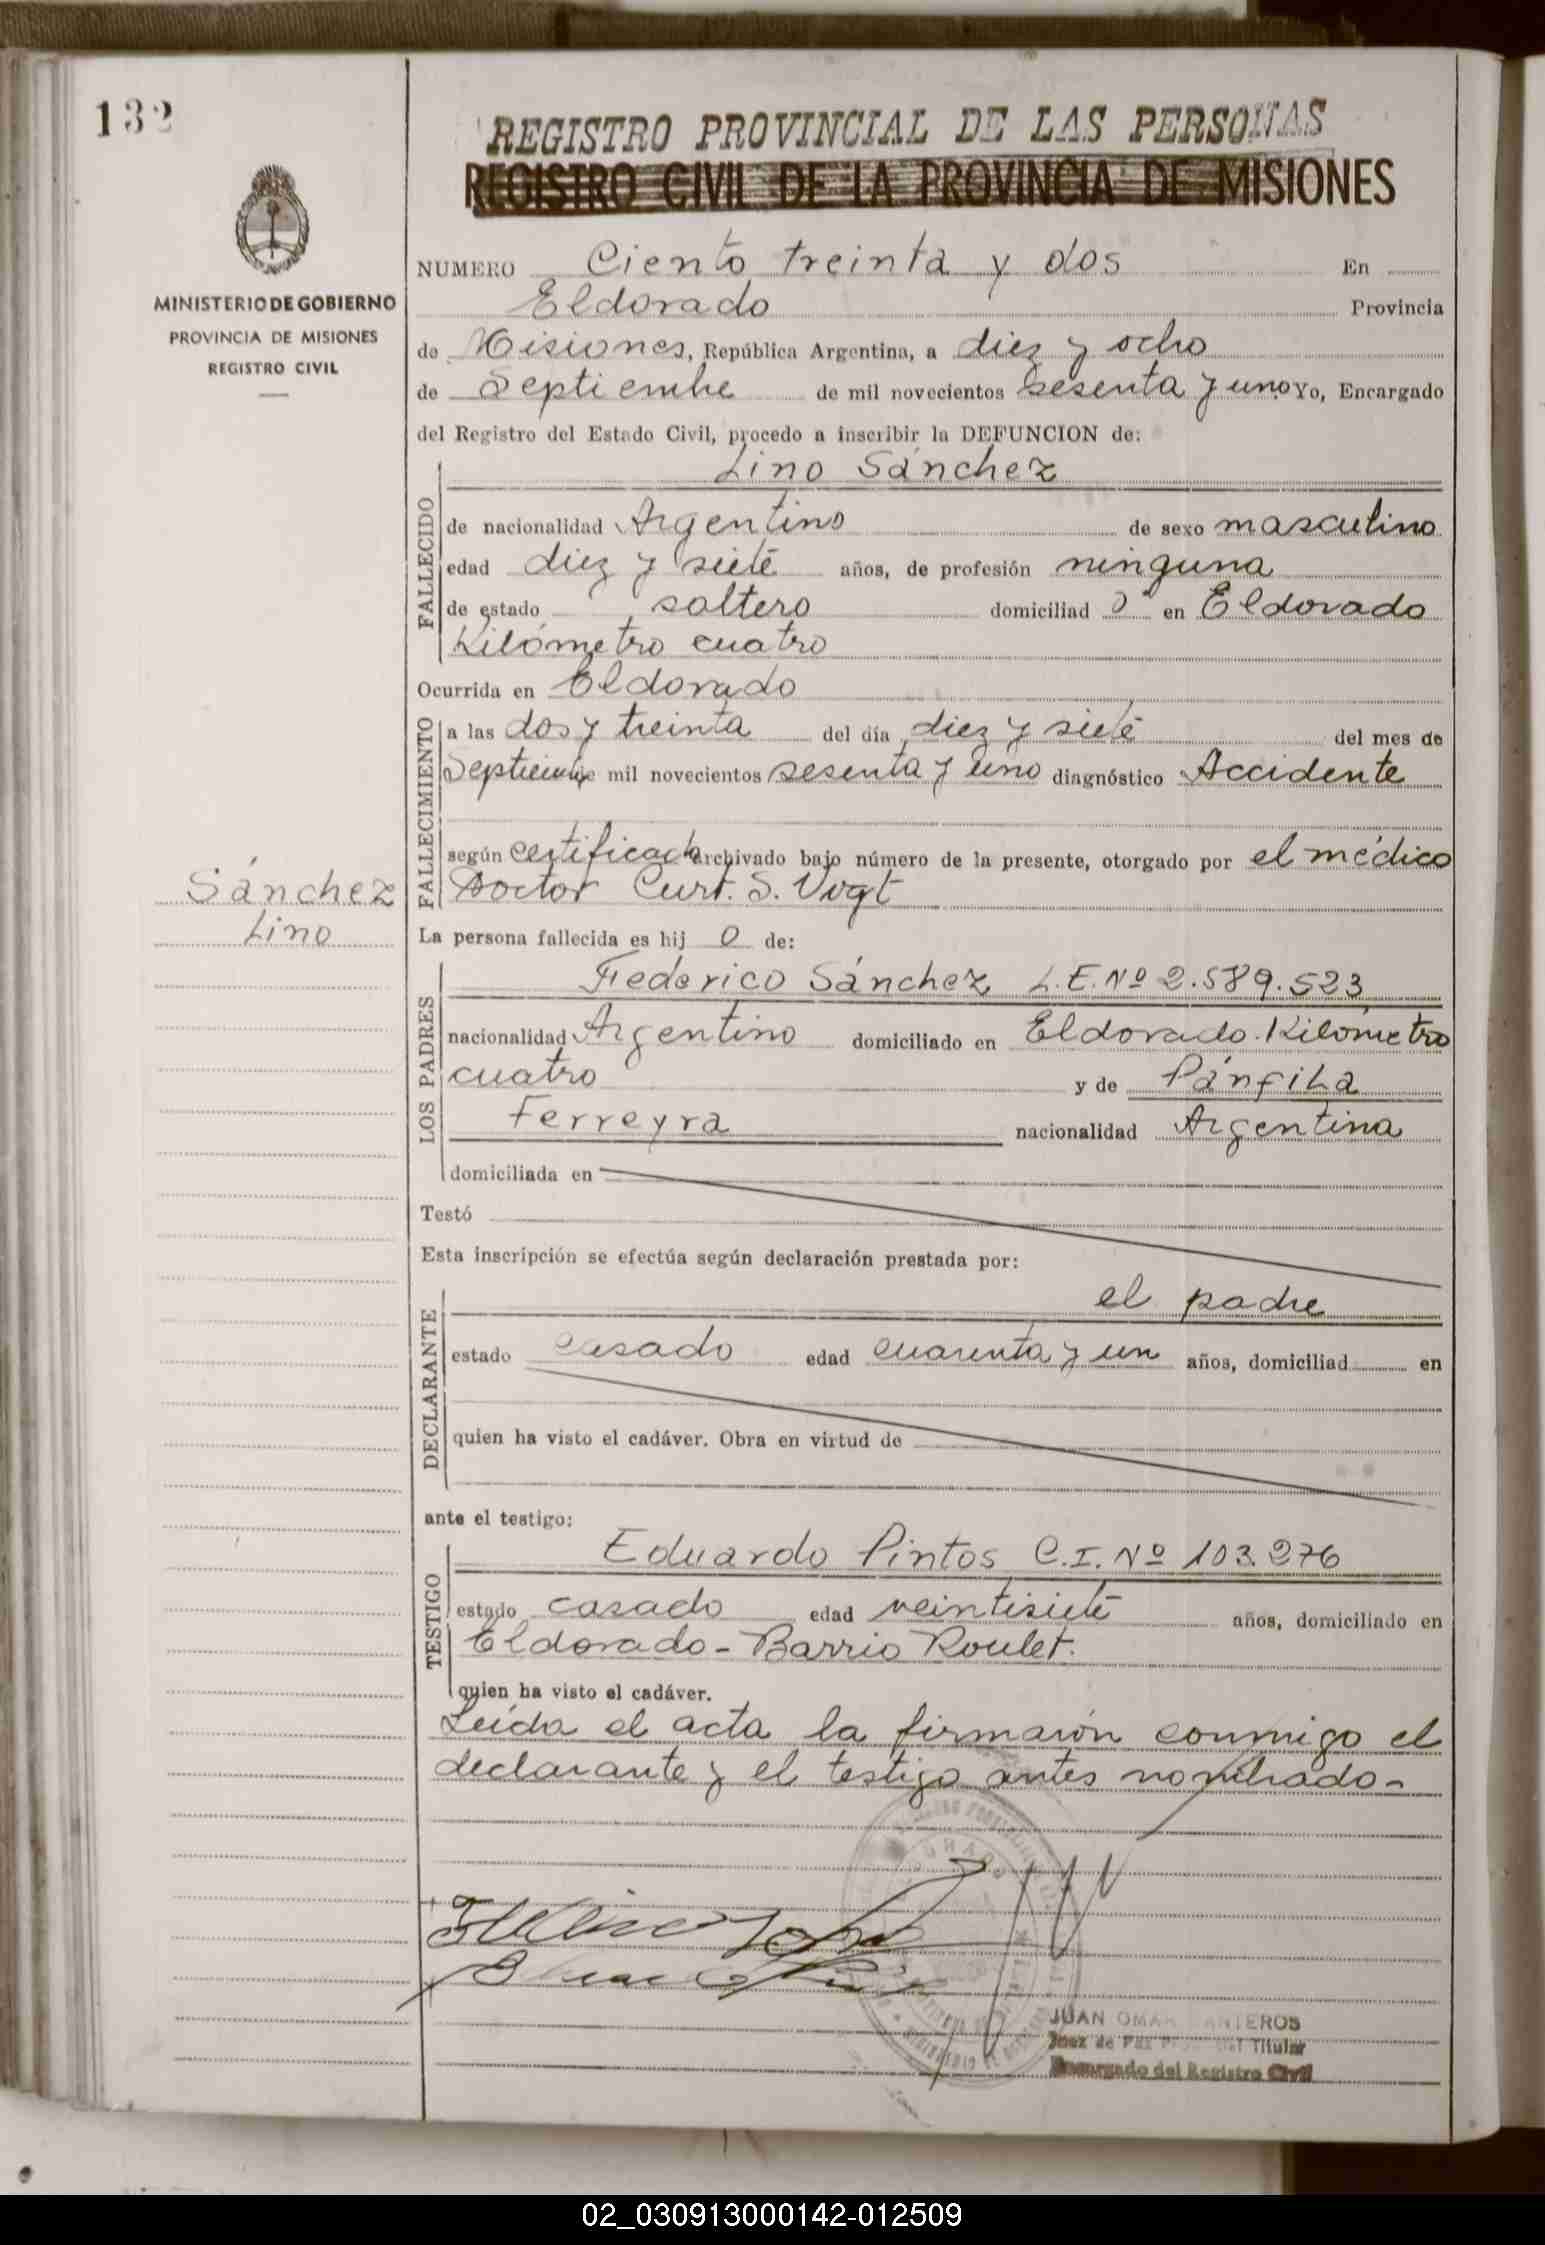 132
REGISTRO PROVINCIAL DE LAS PERSONAS
REGISTRO CIVIL DE LA PROVINCIA DE MISIONES
MINISTERIO DE GOBIERNO
PROVINCIA DE MISIONES
REGISTRO CIVIL
NUMERO Ciento treinta y dos En
Eldorado Provincia
de Misiones, República Argentina, a diez y ocho
de Septiembre de mil novecientos sesenta y uno Yo, Encargado
del Registro del Estado Civil, procedo a inscribir la DEFUNCION de:
Lino Sánchez
FALLECIDO
de nacionalidad Argentino de sexo masculino
edad diez y siete años, de profesión ninguna
de estado soltero domiciliad o en Eldorado
Kilómetro cuatro
Ocurrida en Eldorado
FALLECIMIENTO
a las dos y treinta del día diez y siete del mes de
Septiembre mil novecientos sesenta y uno diagnóstico Accidente
según certificado archivado bajo número de la presente, otorgado por el médico
Doctor Curt. S. Vogt
Sánchez
Lino
La persona fallecida es hij o de:
LOS PADRES
Federico Sánchez L.E. Nº 2.589.523
nacionalidad Argentino domiciliado en Eldorado. Kilómetro
cuatro y de Pánfila
Ferreyra nacionalidad Argentina
domiciliada en
Testó
Esta inscripción se efectúa según declaración prestada por:
DECLARANTE
el padre
estado casado edad cuarenta y un años, domiciliad en
quien ha visto el cadáver. Obra en virtud de
ante el testigo:
TESTIGO
Eduardo Pintos C.I. Nº 103.276
estado casado edad veintisiete años, domiciliado en
Eldorado - Barrio Roulet.
quien ha visto el cadáver.
Leída el acta la firmaron conmigo el
declarante y el testigo antes nombrado-
JUAN OMAR
Juez de Paz Titular
Encargado del Registro Civil
02_030913000142-012509